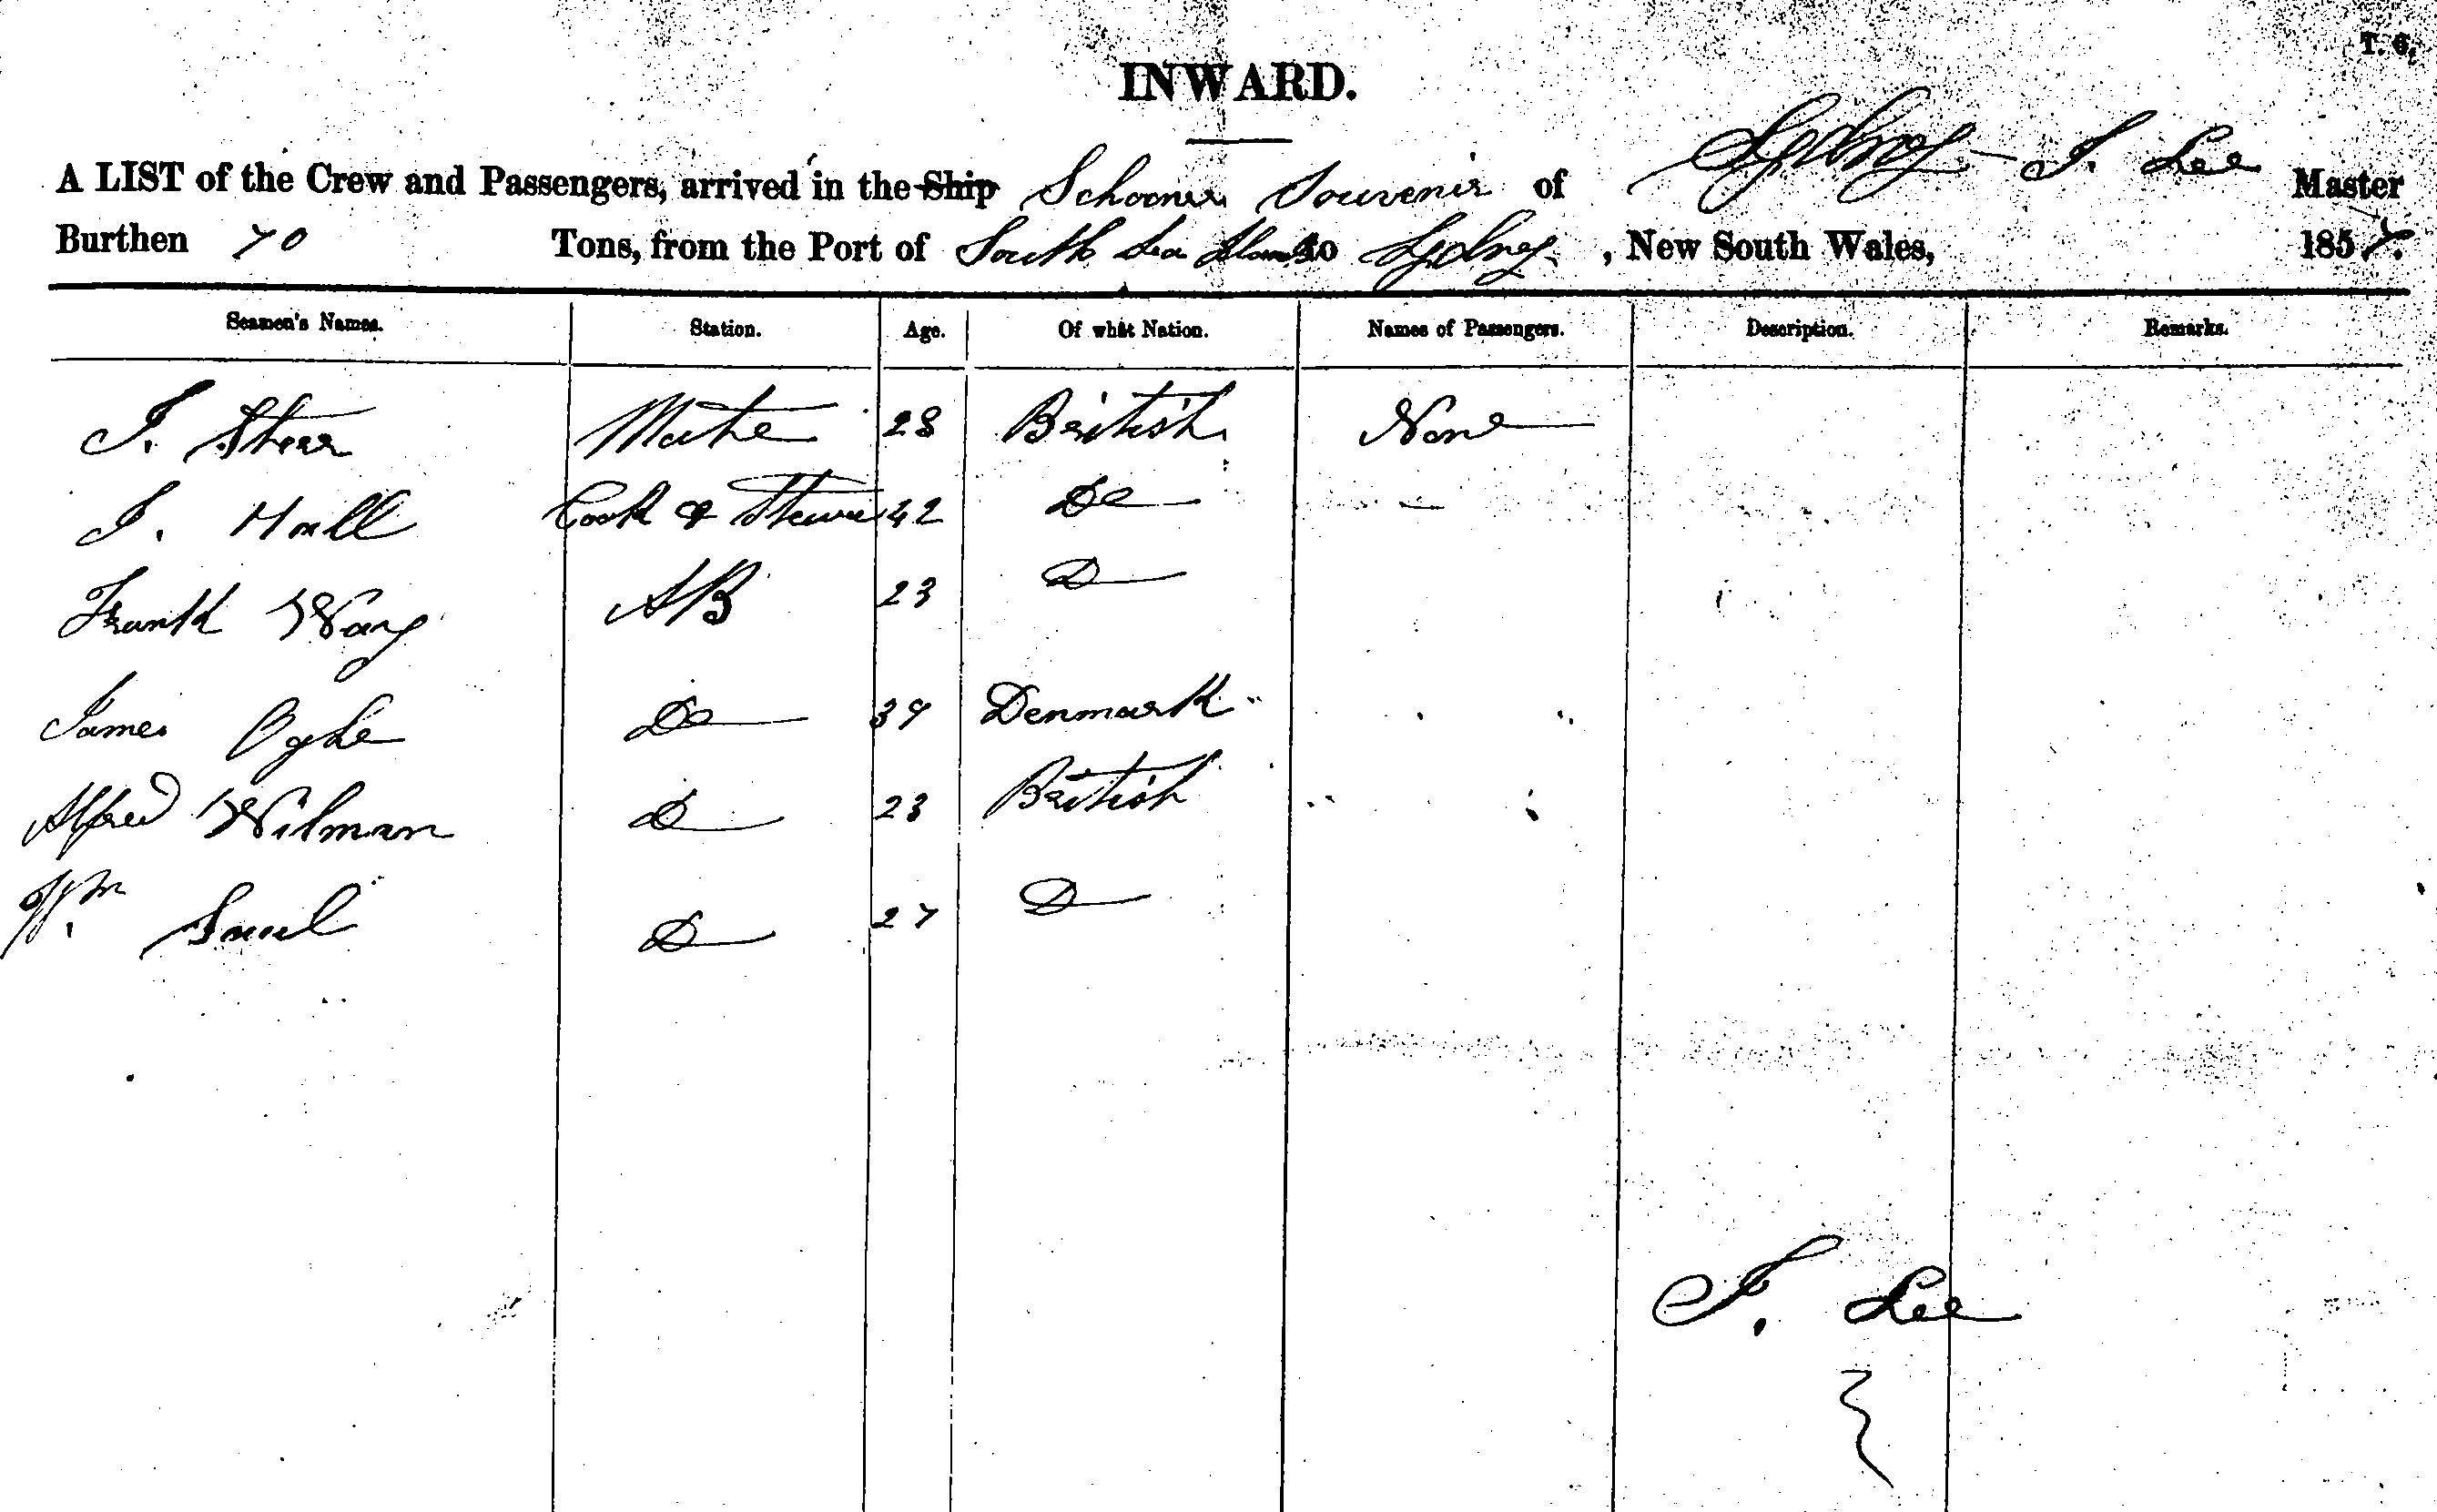 T. 6.
INWARD.
A LIST of the Crew and Passengers, arrived in the Ship Schooner Souvenir of Sydney - J. Lee Master
Burthen 70 Tons, from the Port of South Sea Islands to Sydney, New South Wales, 1857.
Seamen's Names. Station. Age. Of what Nation. Names of Passengers. Description. Remarks.
J. Shear Mate 28 British None
J. Hall Cook & Stewa 42 Do
Frank Way AB 23 D
James Do 39 Denmark
Alfred Wilman D 23 British
Wm D 27 D
J. Lee